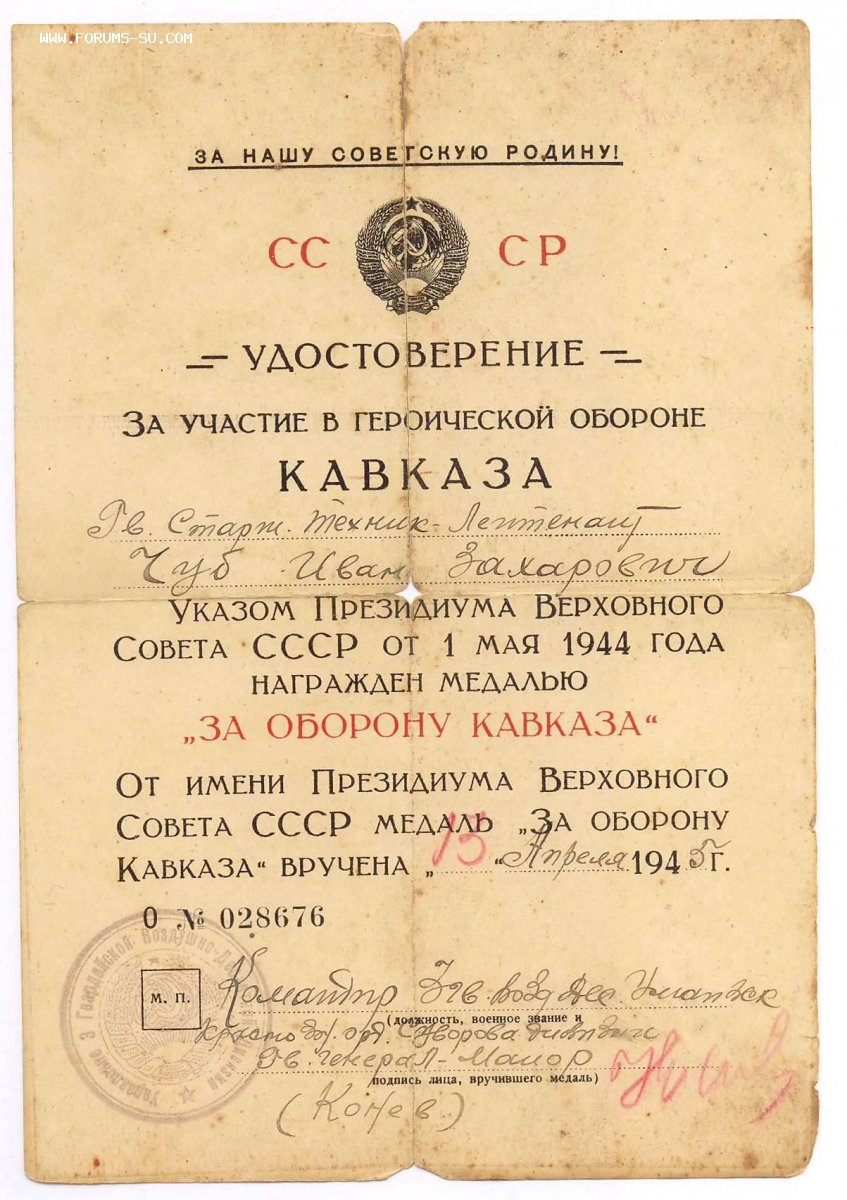 WWW.FORUMS-SU.COM
ЗА НАШУ СОВЕТСКУЮ РОДИНУ!
СС СР
УДОСТОВЕРЕНИЕ
ЗА УЧАСТИЕ В ГЕРОИЧЕСКОЙ ОБОРОНЕ
КАВКАЗА
Гв. Старш. Техник-Лейтенант
Чуб Иван Захарович
УКАЗОМ ПРЕЗИДИУМА ВЕРХОВНОГО
СОВЕТА СССР ОТ 1 МАЯ 1944 ГОДА
НАГРАЖДЕН МЕДАЛЬЮ
„ЗА ОБОРОНУ КАВКАЗА“
ОТ ИМЕНИ ПРЕЗИДИУМА ВЕРХОВНОГО
СОВЕТА СССР МЕДАЛЬ „ЗА ОБОРОНУ
КАВКАЗА“ ВРУЧЕНА „15“ Апреля 1945 г.
О № 028676
М. П.
Командир 3 гв. возд. дес. Уманск
(должность, военное звание и
Красноз. орд. Суворова дивизии
Гв. Генерал-Майор
подпись лица, вручившего медаль)
(Конев)
Управление 3 Гвардейской Воздушно-